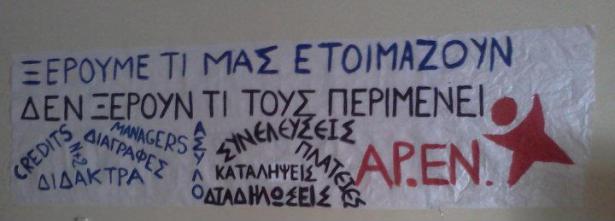 ΞΕΡΟΥΜΕ ΤΙ ΜΑΣ ΕΤΟΙΜΑΖΟΥΝ
ΔΕΝ ΞΕΡΟΥΝ ΤΙ ΤΟΥΣ ΠΕΡΙΜΕΝΕΙ
CREDITS
MANAGERS
ΔΙΑΓΡΑΦΕΣ
ΔΙΔΑΚΤΡΑ
ΑΣΥΛΟ
ΣΥΝΕΛΕΥΣΕΙΣ
ΠΛΑΤΕΙΕΣ
ΚΑΤΑΛΗΨΕΙΣ
ΔΙΑΔΗΛΩΣΕΙΣ
ΑΡ.ΕΝ.